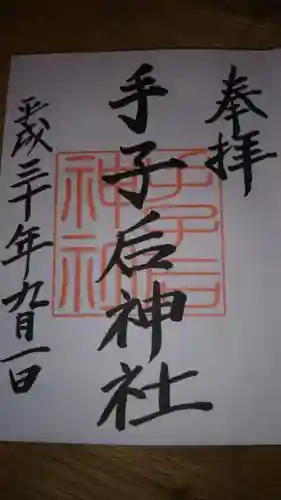 奉拝
手子后神社
平成三十年九月一日
手子后
神社